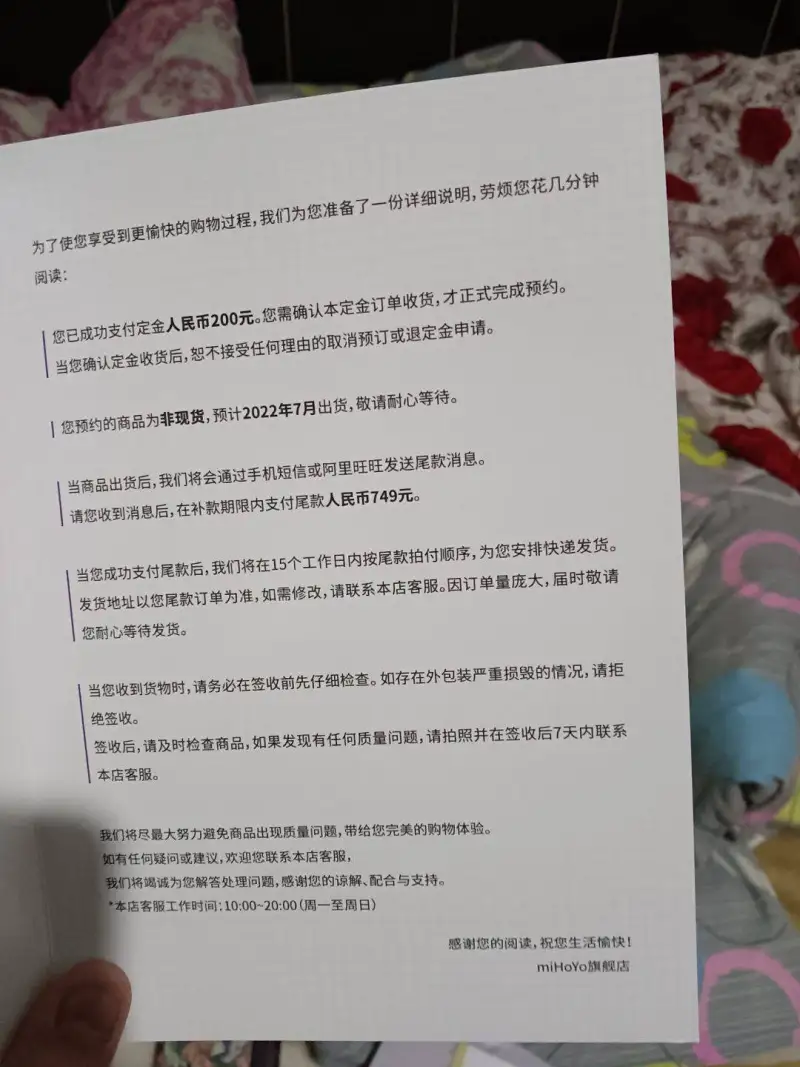 为了使您享受到更愉快的购物过程，我们为您准备了一份详细说明，劳烦您花几分钟
阅读：
您已成功支付定金人民币200元。您需确认本定金订单收货，才正式完成预约。
当您确认定金收货后，恕不接受任何理由的取消预订或退定金申请。
您预约的商品为非现货，预计2022年7月出货，敬请耐心等待。
当商品出货后，我们将会通过手机短信或阿里旺旺发送尾款消息。
请您收到消息后，在补款期限内支付尾款人民币749元。
当您成功支付尾款后，我们将在15个工作日内按尾款拍付顺序，为您安排快递发货。
发货地址以您尾款订单为准，如需修改，请联系本店客服。因订单量庞大，届时敬请
您耐心等待发货。
当您收到货物时，请务必在签收前先仔细检查。如存在外包装严重损毁的情况，请拒
绝签收。
签收后，请及时检查商品，如果发现有任何质量问题，请拍照并在签收后7天内联系
本店客服。
我们将尽最大努力避免商品出现质量问题，带给您完美的购物体验。
如有任何疑问或建议，欢迎您联系本店客服，
我们将竭诚为您解答处理问题，感谢您的谅解、配合与支持。
*本店客服工作时间：10:00~20:00（周一至周日）
感谢您的阅读，祝您生活愉快！
miHoYo旗舰店